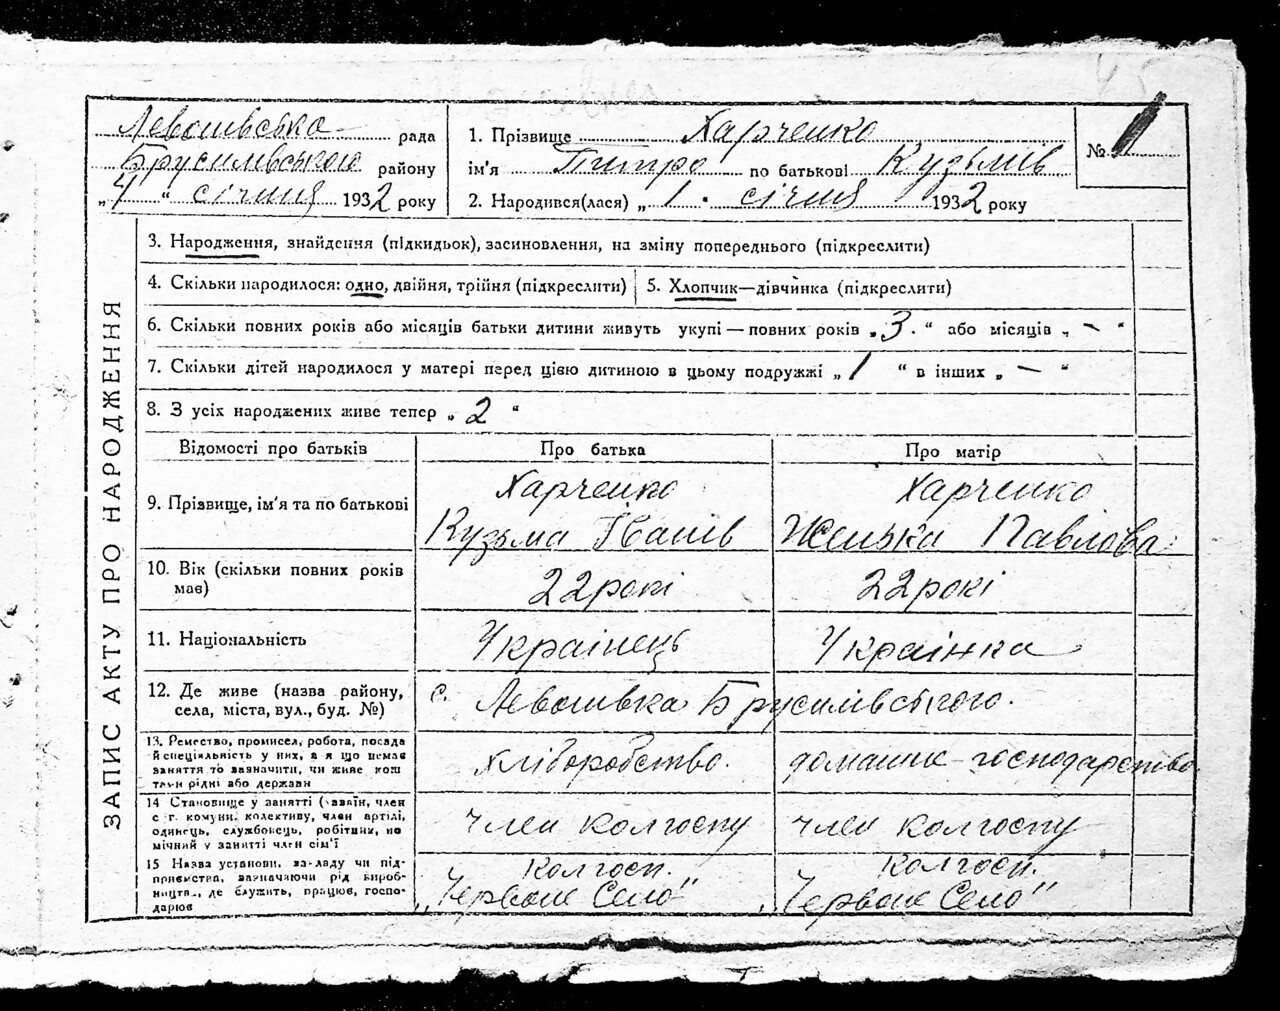 Левошівська рада
Брусилівського району
„4“ січня 1932 року
1. Прізвище Харченко
ім'я Питро по батькові Кузьмів
2. Народився(лася) „1. січня 1932 року
№ 1
ЗАПИС АКТУ ПРО НАРОДЖЕННЯ
3. Народження, знайдення (підкидьок), засиновлення, на зміну попереднього (підкреслити)
4. Скільки народилося: одно, двійня, трійня (підкреслити)
5. Хлопчик—дівчинка (підкреслити)
6. Скільки повних років або місяців батьки дитини живуть укупі — повних років „3.“ або місяців „—“
7. Скільки дітей народилося у матері перед цією дитиною в цьому подружжі „1“ в інших „—“
8. З усіх народжених живе тепер „2“
Відомості про батьків Про батька Про матір
9. Прізвище, ім'я та по батькові
Харченко
Кузьма Іванів
Харченко
Женька Павлова
10. Вік (скільки повних років
має)
22 рокі 22 рокі
11. Національність Українець Українка
12. Де живе (назва району,
села, міста, вул., буд. №)
с. Левошівка Брусилівського.
13. Ремество, промисел, робота, посада
й спеціяльність у них, а я що немає
заняття то зазначити, чи живе кош
том рідні або держави
Хліборобство. домашнє господарство
14 Становище у занятті (хазяїн, член
с г. комуни, колективу, член артілі,
одинець, службовець, робітник, по
мічний у занятті член сім'ї
член колгоспу член колгоспу
15 Назва установи, закладу чи під-
приємства, зазначаючи рід вироб-
ництва, де служить, працює, госпо-
дарює
Колгосп.
„Червоне Село"
Колгосп.
„Червоне Село"